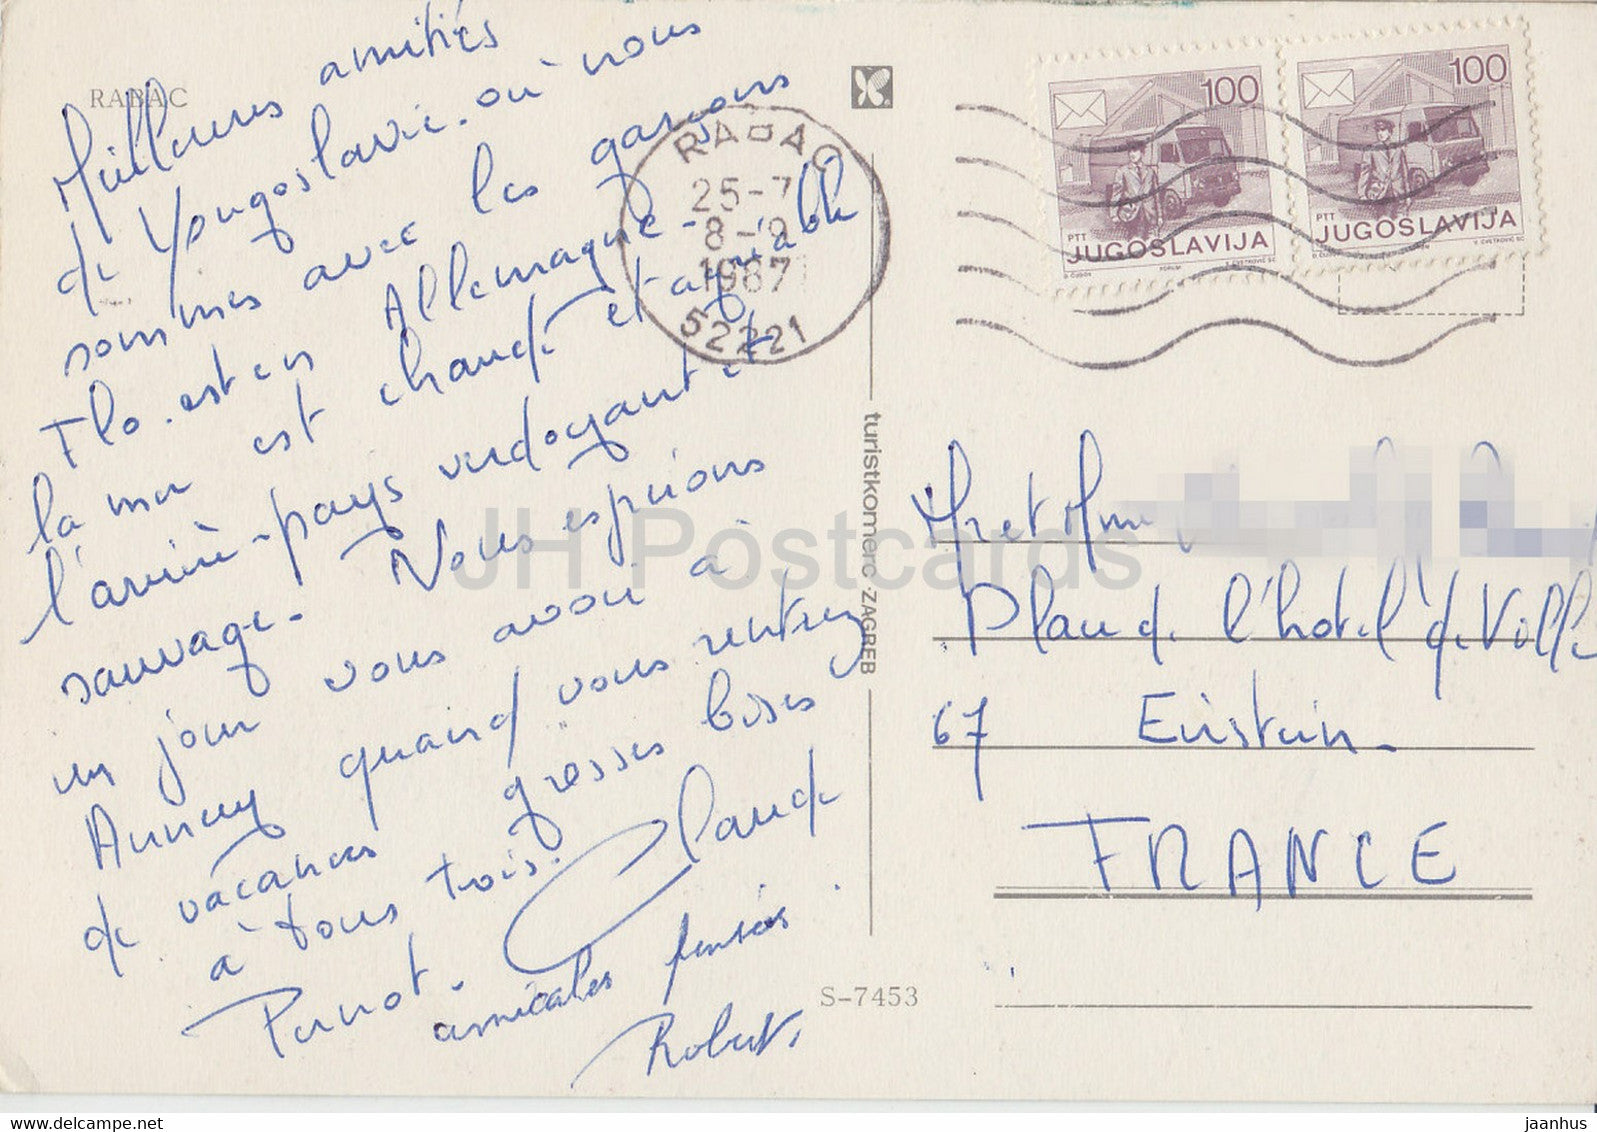 RABAC
Meilleures amitiés
de Yougoslavie. où nous
sommes avec les garçons
Flo. est en Allemagne -
la mer est chaude et agréable
l'arrière-pays verdoyant et
sauvage. Nous espérions
un jour vous avoir à
Annecy quand vous rentrez
de vacances grosses bises
à tous trois. Claude
Perrot. amicales pensées
Robert.
RABAC
25-7
8-9
1987
52221
100
PTT
JUGOSLAVIJA
FORUM
100
PTT
JUGOSLAVIJA
turistkomerc - ZAGREB
S-7453
Mr et Mme
Place de l'hotel de Ville
67 Erstein -
FRANCE
JH Postcards
jaanhus @ www.delcampe.net